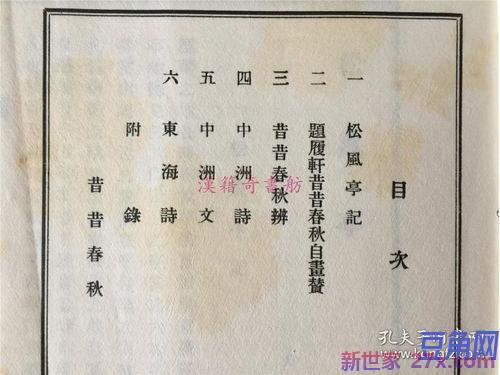 目次
一 松風亭記
二 題履軒昔昔春秋自畫贊
三 昔昔春秋辨
四 中洲詩
五 中洲文
六 東海詩
附錄
昔昔春秋
漢籍奇書舫
豆角网
新世家 27x.com